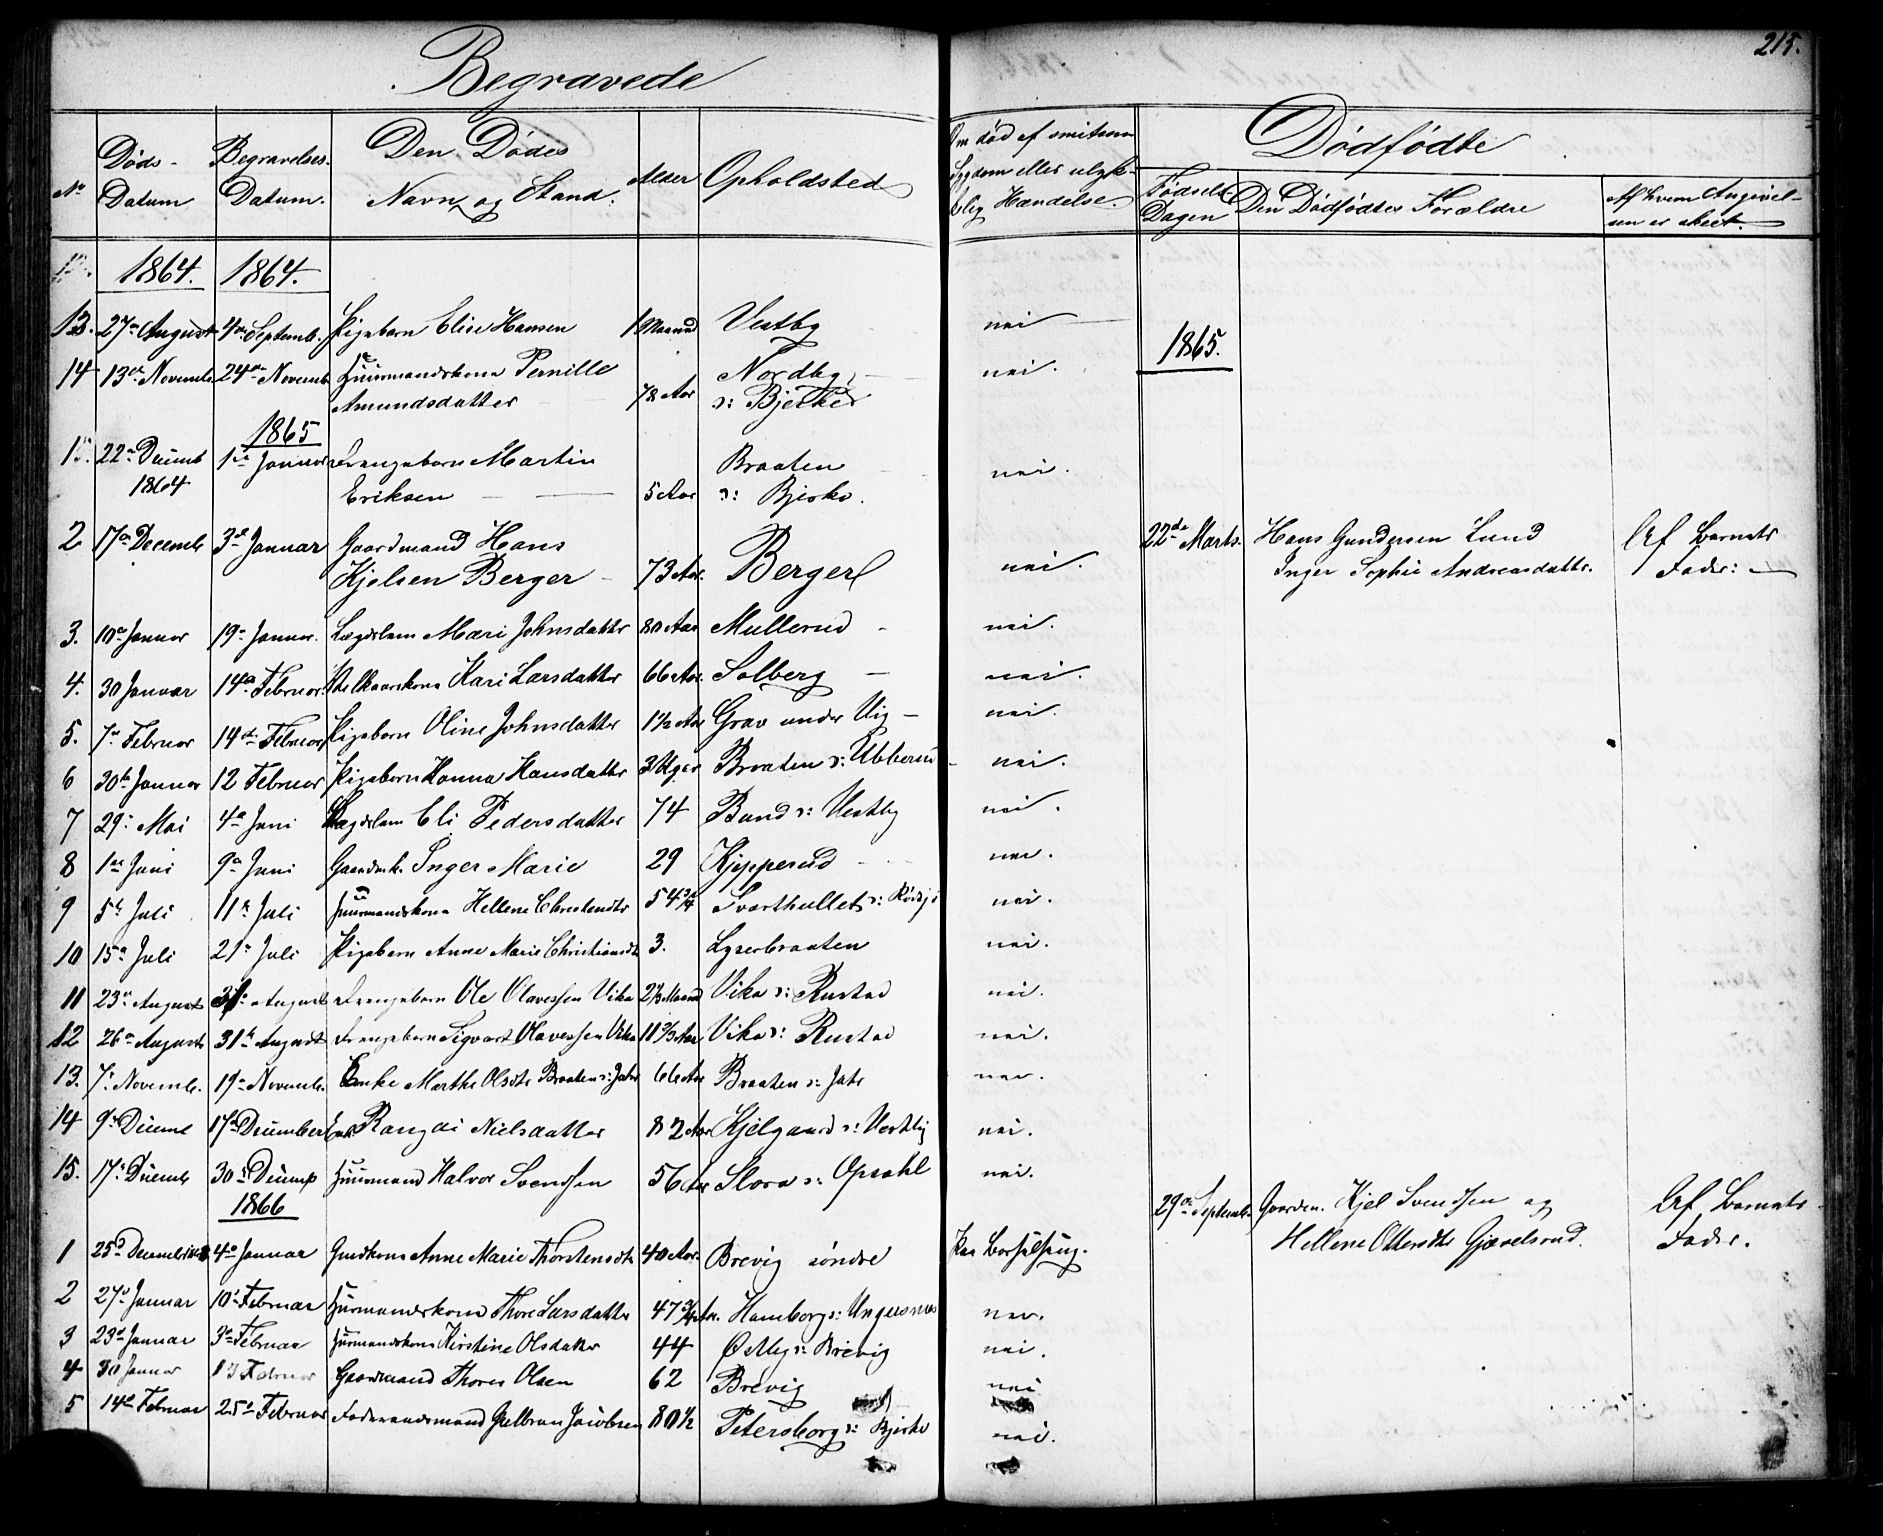 215.
Begravede
Nº Døds- Datum
Begravelses- Datum.
Den Dødes Navn og Stand.
Alder
Opholdsted
Om død af smitsom Sygdom eller ulyk- lig Hændelse.
Dødfødte
Fødsels- Dagen
Den Dødfødtes Forældre
Af hvem Angivel- sen er skeet.
1864. 1864.
13. 27de August 4de Septemb. Pigebarn Elise Hansen 1 Maaned Vestby nei
1865.
14 13de Novemb. 24de Novemb. Huusmandskone Pernille Nordby, nei.
Amundsdatter 78 Aar s: Bjerke
1865
22de Decemb 1ste Januar Drengebarn Martin Braaten nei.
1864 Eriksen 5 Aar s: Bjerke.
2 17de Decemb 3de Januar Gaardmand Hans
Kjelsen Berger 73 Aar. Berger nei.
22de Marts. Hans Gundersen Lund Af Barnets
Inger Sophie Andreasdattr. Fader:
3. 10de Januar 19de Januar. Lægdslem Mari Johnsdatter 80 Aar Mullerud nei.
4. 30 Januar 14de Februar. Kari Larsdatter 66 Aar. Solberg nei.
5. 7de Februar 14de Februar Pigebarn Oline Johnsdatter 1½ Aar Grav under Vig nei.
6 30te Januar 12 Februar Pigebarn Hanna Hansdatter 3 Uger Braaten s: Ubberud nei.
7 29de Mai 4de Juni Lægdslem Eli Pedersdatter 74 Bund s: Vestby nei.
8 1ste Juni 9de Juni Gaardmk. Inger Marie 29 Kjypperud nei.
9 5te Juli 11te Juli Huusmandskone Hellene Christendtr 54¾ Svarthullet s: nei.
10 15de Juli 21de Juli Pigebarn Anne Marie Christiansdtr 3. Lyserbraaten nei.
11 23de August 31te August Drengebarn Ole Olavessen Vika 2½ Maaned Vika s: Rustad nei.
12 26de August 31te August Drengebarn Sigvart Olavessen Vika 11⅔ Aar Vika s: Rustad nei.
13. 7de Novemb. 19de Novemb. Enke Marthe Olsdtr Braaten s: Jahr 66 Aar Braaten s: Jahr nei.
14 9de Decemb 17de December Enk. Rangdi Nielsdatter 82 Aar Kjelgaard s: Vestby nei.
15. 17de Decemb 30te Decemb Huusmand Halvor Svendsen 56 Aar Slora s: Opsahl nei.
1866
29de Septemb. Gaardm. Kjel Svendsen og Af Barnets
Hellene Ottersdtr Gjævelsrud. Fader.
1 25de Decemb 4de Januar Anne Marie Thorstensdtr 40 Aar. Brevig søndre Paa Barselseng.
2 27de Januar 10de Februar Huusmandskone Thore Larsdatter 47¾ Aar. Hamborg s: Ungersnes nei.
3 23de Januar 3de Februar Huusmandskone Kirstine Olsdatter 44 Østby s: Brevig nei.
4 30 Januar 13 Februar Gaardmand Thores Olsen 62 Brevig nei
5 14de Februar 25de Februar Føderaadsmand Gulbran Jacobsen 80½ Petersborg s: Bjerke nei.